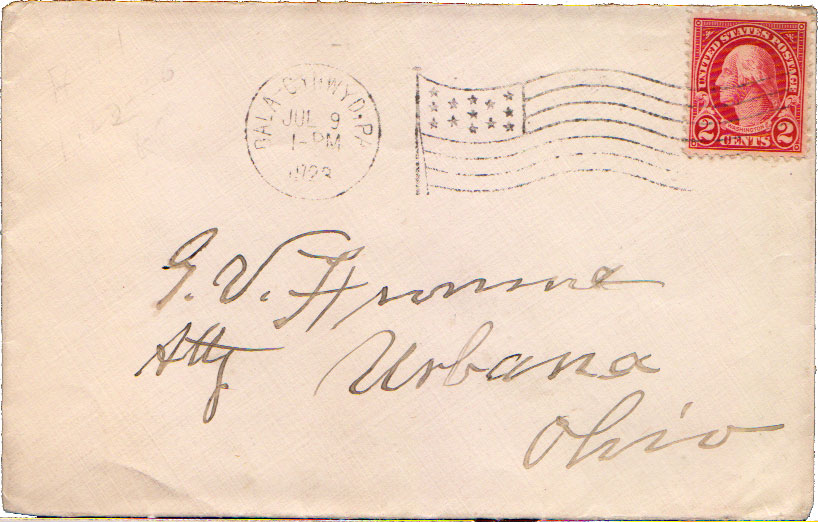 BALA-CYNWYD, PA
JUL 9
1-PM
1923
UNITED STATES POSTAGE
WASHINGTON
2 CENTS 2
G. V. Fromme
Atty
Urbana
Ohio